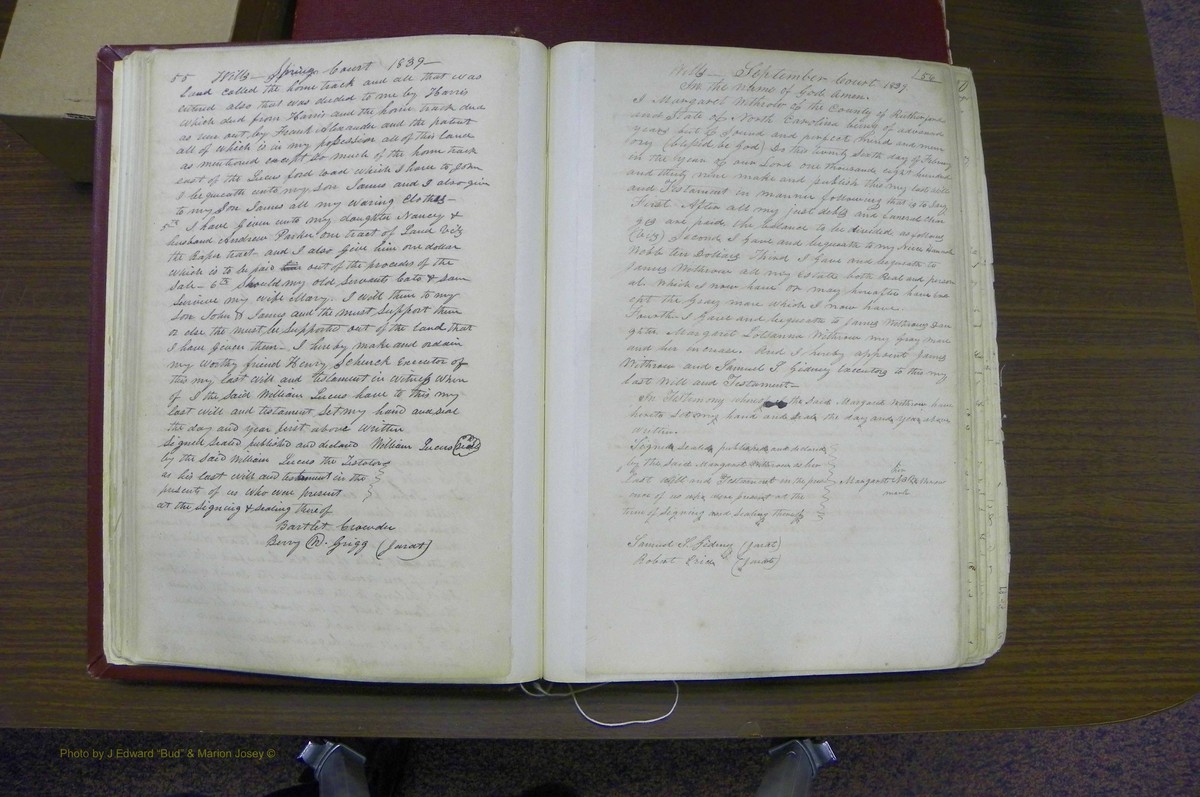 55 Wills - Spring Court 1839 -
Land called the home track and all that was
entered also that was deeded to me by Harris
which died from Harris and the horn track died
as run out by Frank Alexander and the patent
all of which is in my possession all of this land
as mentioned except so much of the home track
east of the Lucus ford road which I have to John
I bequeath unto my son James and I also give
to my Son James all my waring Clothes -
5th I have given unto my daughter Nancy &
husband Andrew Parker one tract of Land Viz
the Roper tract and I also give him one dollar
which is to be paid out of the procedes of the
Sale - 6th Should my old servants Cato & Sam
Survive my wife Mary. I will them to my
Son John & James and the must support them
or else the must be supported out of the land that
I have given them - I hereby make and ordain
my worthy friend Henry Schenck Executor of
this my last will and testament in witness wher
of I the said William Lucus have to this my
last will and testament set my hand and seal
the day and year first above written
Signed sealed published and declared William Lucus (Seal)
by the said William Lucus the Testator
as his last will and testament in the
presents of us who were present
at the Signing & sealing thereof
Bartlet Crowder
Berry W. Grigg (Jurat)
Wills - September Court 1839 56
In the name of God Amen.
I Margaret Withrow of the County of Rutherford
and State of North Carolina being of advanced
years but of Sound and perfect mind and mem
lory (blessed be God) Do this twenty sixth day of Febury
in the year of our Lord one thousand eight hundred
and thirty nine make and publish this my last will
and Testament in manner following that is to say
First. After all my just debts and funeral char
ges are paid the balance to be divided as follows
(Viz) Second I Gave and bequeath to my
Robb ten Dollars Third I Gave and bequeath to
James Witherow all my estate both Real and person
al which I now have or may hereafter have ex
cept the Gray mare which I now have.
Fourth I Gave and bequeath to James Witherows Dau
ghter Margaret Withrow my gray mare
and her increase. And I hereby appoint James
Withrow and Samuel S. Gidney executors to this my
last will and Testament -
In Testimony whereof the said Margaret Withrow have
hereto set my hand and seal the day and year above
written.
Signed Sealed published and declared
by the said Margaret Witherow as her
Last will and Testament in the pres
ence of us who were present at the
time of signing and sealing thereof
her
Margaret X Witherow
mark
Samuel S. Gidney (Jurat)
Robert (Jurat)
Photo by J Edward "Bud" & Marion Josey ©